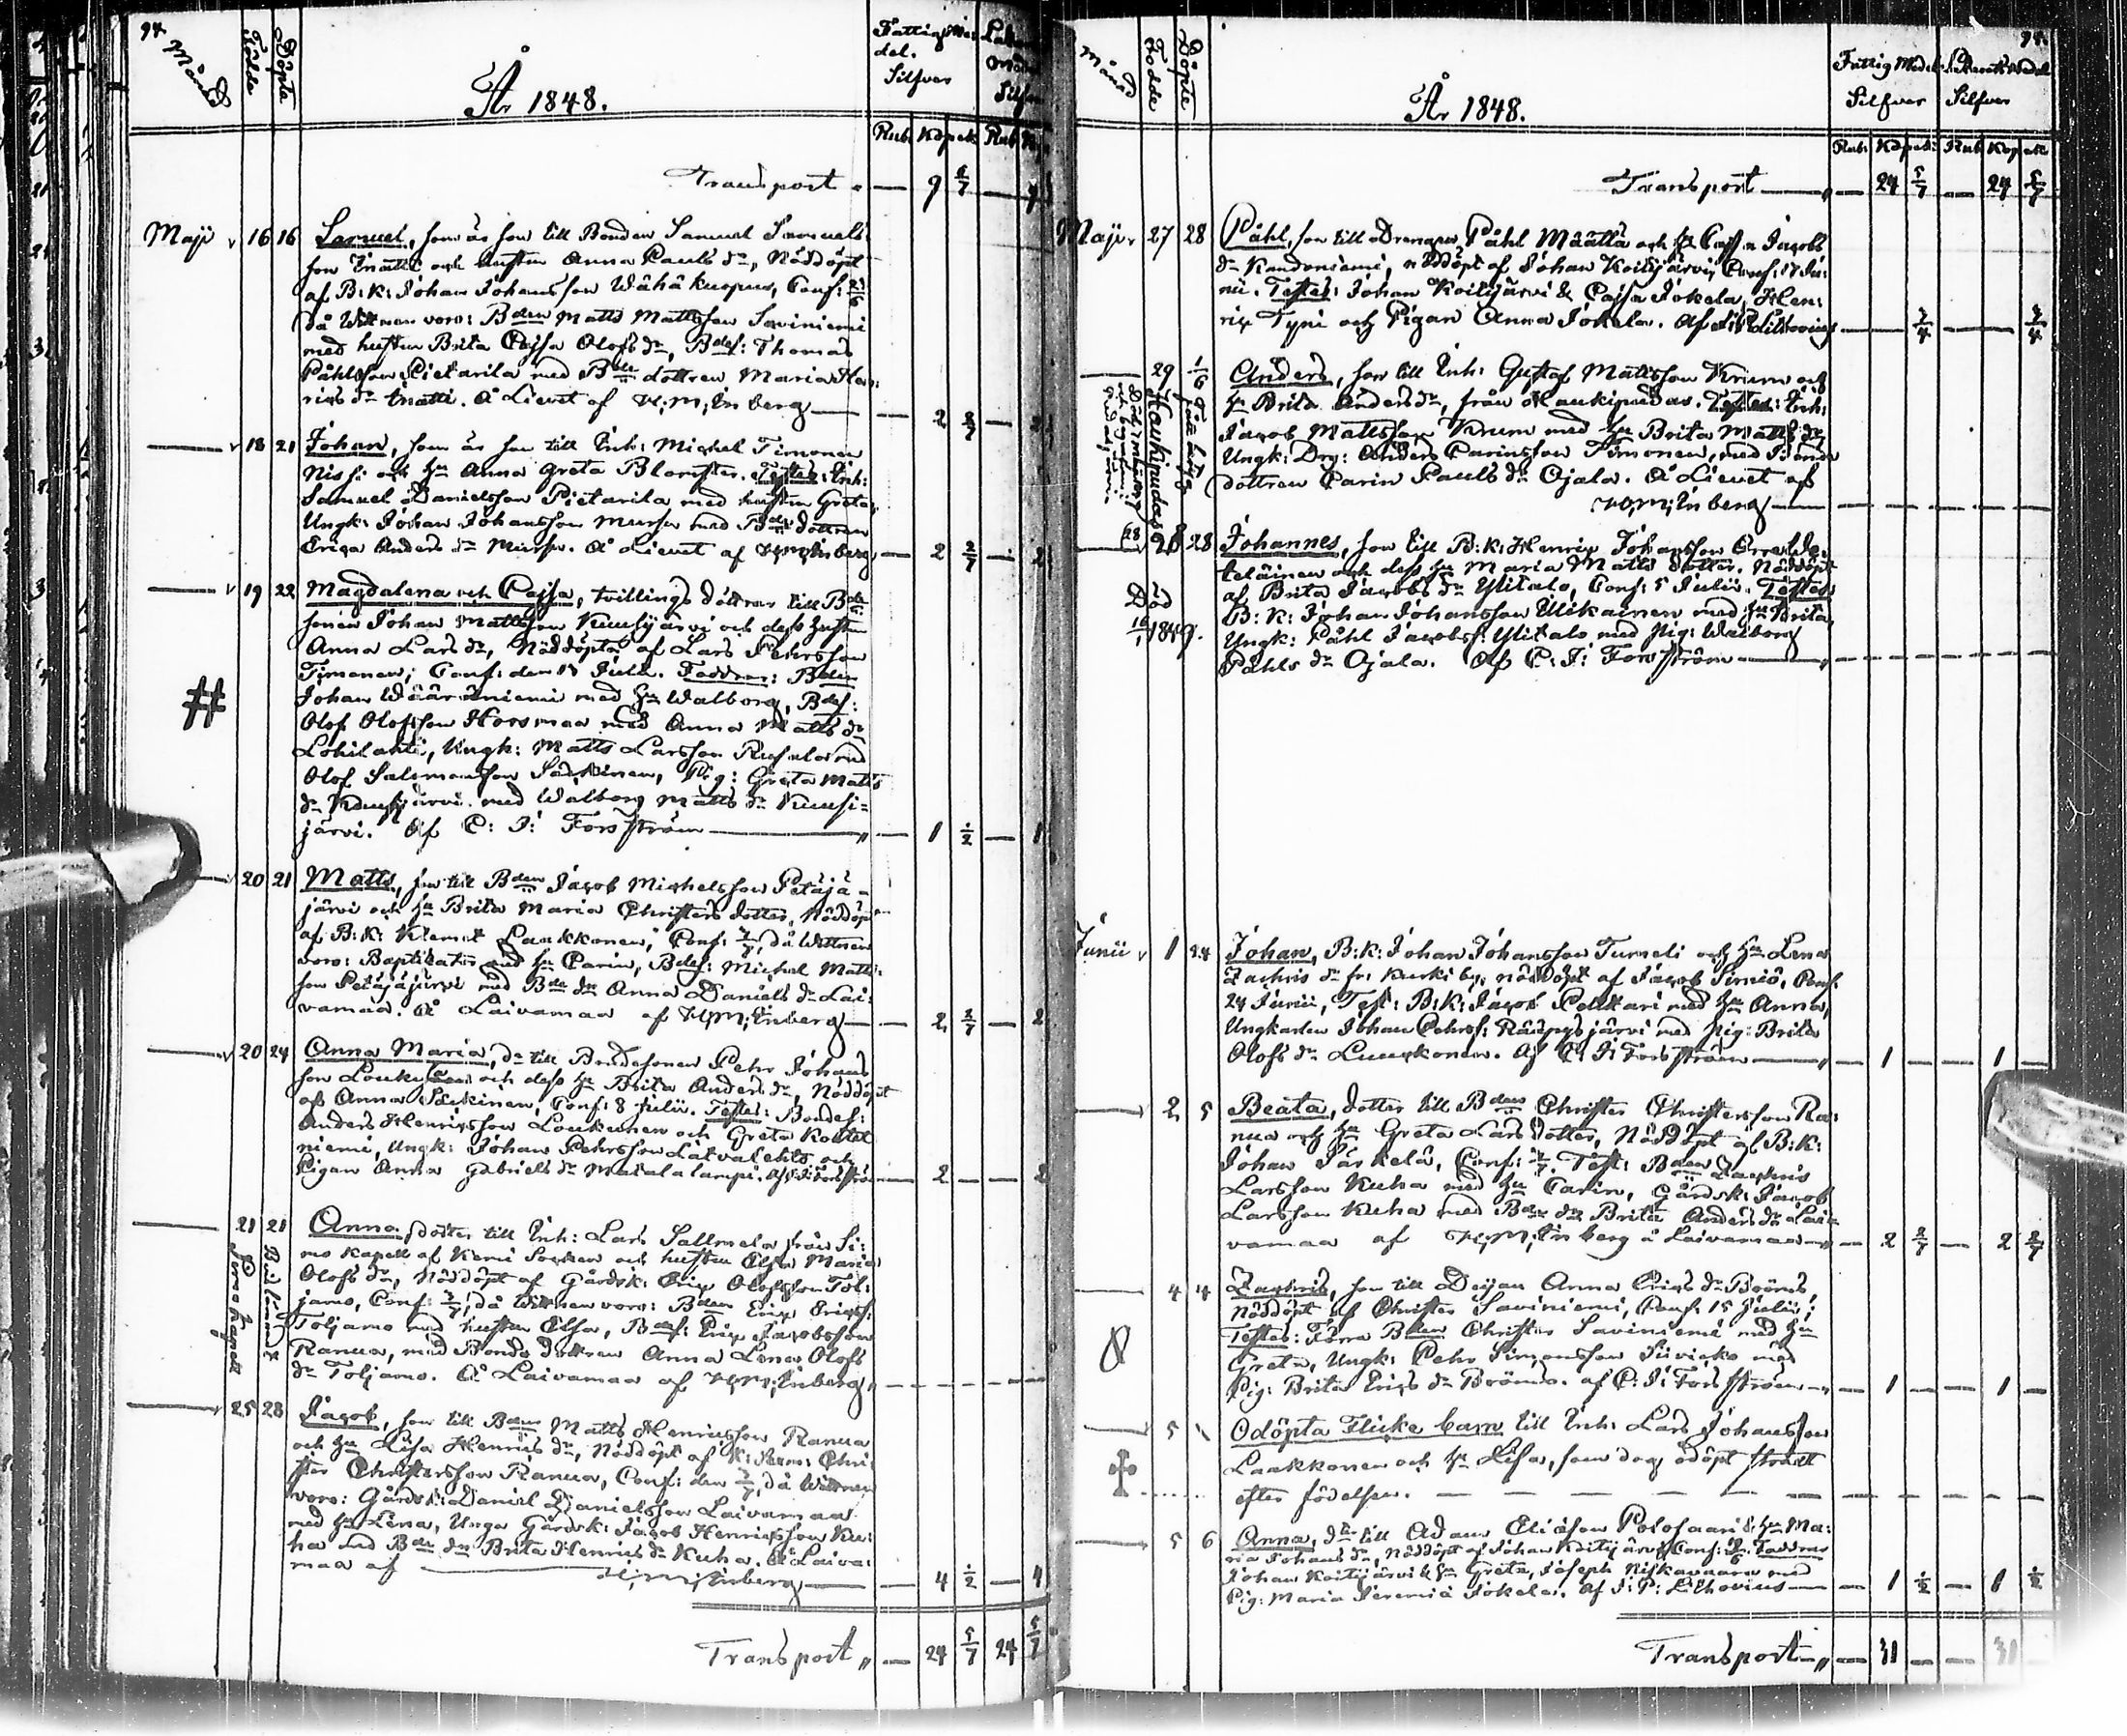 94.
Månad
Födde
Döpte
År 1848.
Fattig Me-
del.
Silfver
Silfver
Rub. Kopek. Rub.
Transport — 9 6/7 —
Maji 16 16 Samuel, som är son till Bonden Samuel Samuels
son och hustru Anna Pauls dr, Nöddöpt
af B: K: Johan Johansson Wähäkuopus, Conf:
då Wittnen voro: Bden Matts Mattsson Saviniemi
med hustru Brita Cajsa Olofs dr, Bdes: Thomas
Påhlsson Pietarila med Bde dottren Maria Hen-
riks dr. Å Lievet af H: M: Enberg — 2 2/7 —
18 21 Johan, som är son till Inh: Michel Timonen
Nissi och Hu Anna Greta Blomster. Testes: Inh:
Samuel Danielsson Pietarila med hustru Greta,
Ungk: Johan Johansson Mursu med Bde dottren
Erica Anders dr Mursu. Å Lievet af H:M:Enberg — 2 2/7 — 2
19 22 Magdalena och Cajsa, tvillings döttrar till Bde
sonen Johan Mattsson Kuusijärvi och dess hustru
Anna Lars dr, Nöddöpta af Lars Pehrsson
Timonen; Conf: den Julii. Faddrar: Bden
Johan Wääräniemi med Hu Walborg, Bdes:
Olof Olofsson Hoosmaa med Anna Matts dr
Lohilahti, Ungk: Matts Larsson med
Olof Salomonsson Säkkinen, Pig: Greta Matts
dr Kuusijärvi med Walborg Matts dr Kuusi-
järvi. Af C: J: Forsström — 1 1/2 — 1
20 21 Matts, son till Bden Jacob Michelsson Petäjä-
järvi och Hu Brita Maria Christers dotter, Nöddöpt
af B: K: Klemet Laakkonen, Conf: 2/7, då Wittnen
voro: Baptisator med Hu Carin, Bdes: Michel Matts
son Petäjäjärvi med Bde dr Anna Daniels dr Lai-
vamaa. Å Laivamaa af H:M:Enberg — 2 2/7 — 2
20 24 Anna Maria, dr till Bondesonen Pehr Johans
son Loukusa och dess Hu Brita Anders dr, Nöddöpt
af Anna Säkkinen, Conf: 8 Julii. Testes: Bondes:
Anders Henriksson Loukusa och Greta
niemi, Ungk: Johan Pehrsson Latvalehto och
Pigan Anna Gabriels dr Matalalampi. Af C: J: Forsström — 2 — — 2
21 21 Anna, dotter till Inh: Lars Sallmela från Si-
mo Kapell af Kemi Socken och hustru Elsa Maria
Olofs dr, Nöddöpt af Gårdsk: Eric Olofsson Tol-
jamo, Conf: 2/7, då Wittnen voro: Bden Eric Erics:
Toljamo med hustru Elsa, Bdes: Eric Jacobsson
Ranua, med Bonde dottren Anna Lena Olofs
dr Toljamo. Å Laivamaa af H:M:Enberg
Simo kapell
25 28 Jacob, son till Bden Matts Henricsson Ranua
och Hu Lisa Henrics dr, Nöddöpt af Chri-
ster Christersson Ranua, Conf: den 2/7, då Wittnen
voro: Gårdsk: Daniel Danielsson Laivamaa
med Hu Lena, Unga Gårdsk: Jacob Henricsson Ku-
ha med Bde dr Brita Henrics dr Kuha. Å Laiva-
maa af H:M:Enberg — 4 1/2 — 4
Transport — 24 5/7 24 5/7
94.
Månad
Födde
Döpte
År 1848.
Fattig Medel
Silfver
Silfver
Rub. Kopek. Rub. Kopek
Transport — 24 5/7 — 24 5/7
Maji 27 28 Påhl, son till Drengen Påhl Määttä och Hu Cajsa Jacobs
dr Kandoniemi, nöddöpt af Johan Koitijärvi, Conf: 17 Ju-
nii. Testes: Johan Koitijärvi & Cajsa Jokela, Hen-
ric Tyni och Pigan Anna Jokela. Af J: P: Lithovius
29 1/6 Anders, son till Inh: Gustaf Mattsson Krum och
Hu Brita Anders dr, från Haukipudas. Testes: Inh:
Jacob Mattsson Krum med Hu Brita Matts dr
Ungk: Drg: Anders Carinsson Timonen, med Bonde
dottren Carin Pauls dr Ojala. Å Lievet af
H:M:Enberg
Haukipudas
28 28 Johannes, son till B: K: Henric Johansson
och dess Hu Maria Matts dotter. Nöddöpt
af Brita Jacobs dr Ylitalo, Conf: 5 Julii. Testes
B: K: Johan Johansson Ulikainen med Hu Brita,
Ungk: Påhl Jacobs: Ylitalo med Pig: Walborg
Påhls dr Ojala. Af C: J: Forsström
Död
1849.
Junii 1 24 Johan, B: K: Johan Johansson Tumeli och Hu Lena
Zachris dr fr: Kurki by, nöddöpt af Jacob Simiö, Conf:
24 Junii, Test: B: K: Jacob Pekkari med Hu Anna,
Ungkarlen Johan Pehrs: Räupysjärvi med Pig: Brita
Olofs dr Luukkonen. Af C: J: Forsström — 1 — — 1
2 5 Beata, dotter till Bden Christer Christersson Ra-
nua och Hu Greta Lars dotter, Nöddöpt af B: K:
Johan Särkelä, Conf: 2/7. Test: Bden Zachris
Larsson Kuha med Hu Carin, Gårdsk: Jacob
Larsson Kuha med Bde dr Brita Anders dr Lai-
vamaa af H:M:Enberg å Laivamaa — 2 2/7 — 2 2/7
4 4 Zachris, son till Dejan Anna Erics dr Brönis,
Nöddöpt af Christer Saviniemi, Conf: 15 Julii;
Testes: Förra Bden Christer Saviniemi med Hu
Greta, Ungk: Pehr Simonsson Siivicko med
Pig: Brita Erics dr Brönis. af C: J: Forsström — 1 — — 1 —
5 Odöpta Flicke barn till Inh: Lars Johansson
Laakkonen och Hu Lisa, som dog odöpt straxt
efter födelsen.
5 6 Anna, dr till Adam Eliasson Polosaari & Hu Ma-
ria Johans dr, Nöddöpt af Johan Koitijärvi, Conf: Faddrar
Johan Koitijärvi & Hu Greta, Joseph Niskavaara med
Pig: Maria Jeremiä Jokela. Af J: P: Lithovius — 1 1/2 — 1 1/2
Transport — 31 — — 31 —